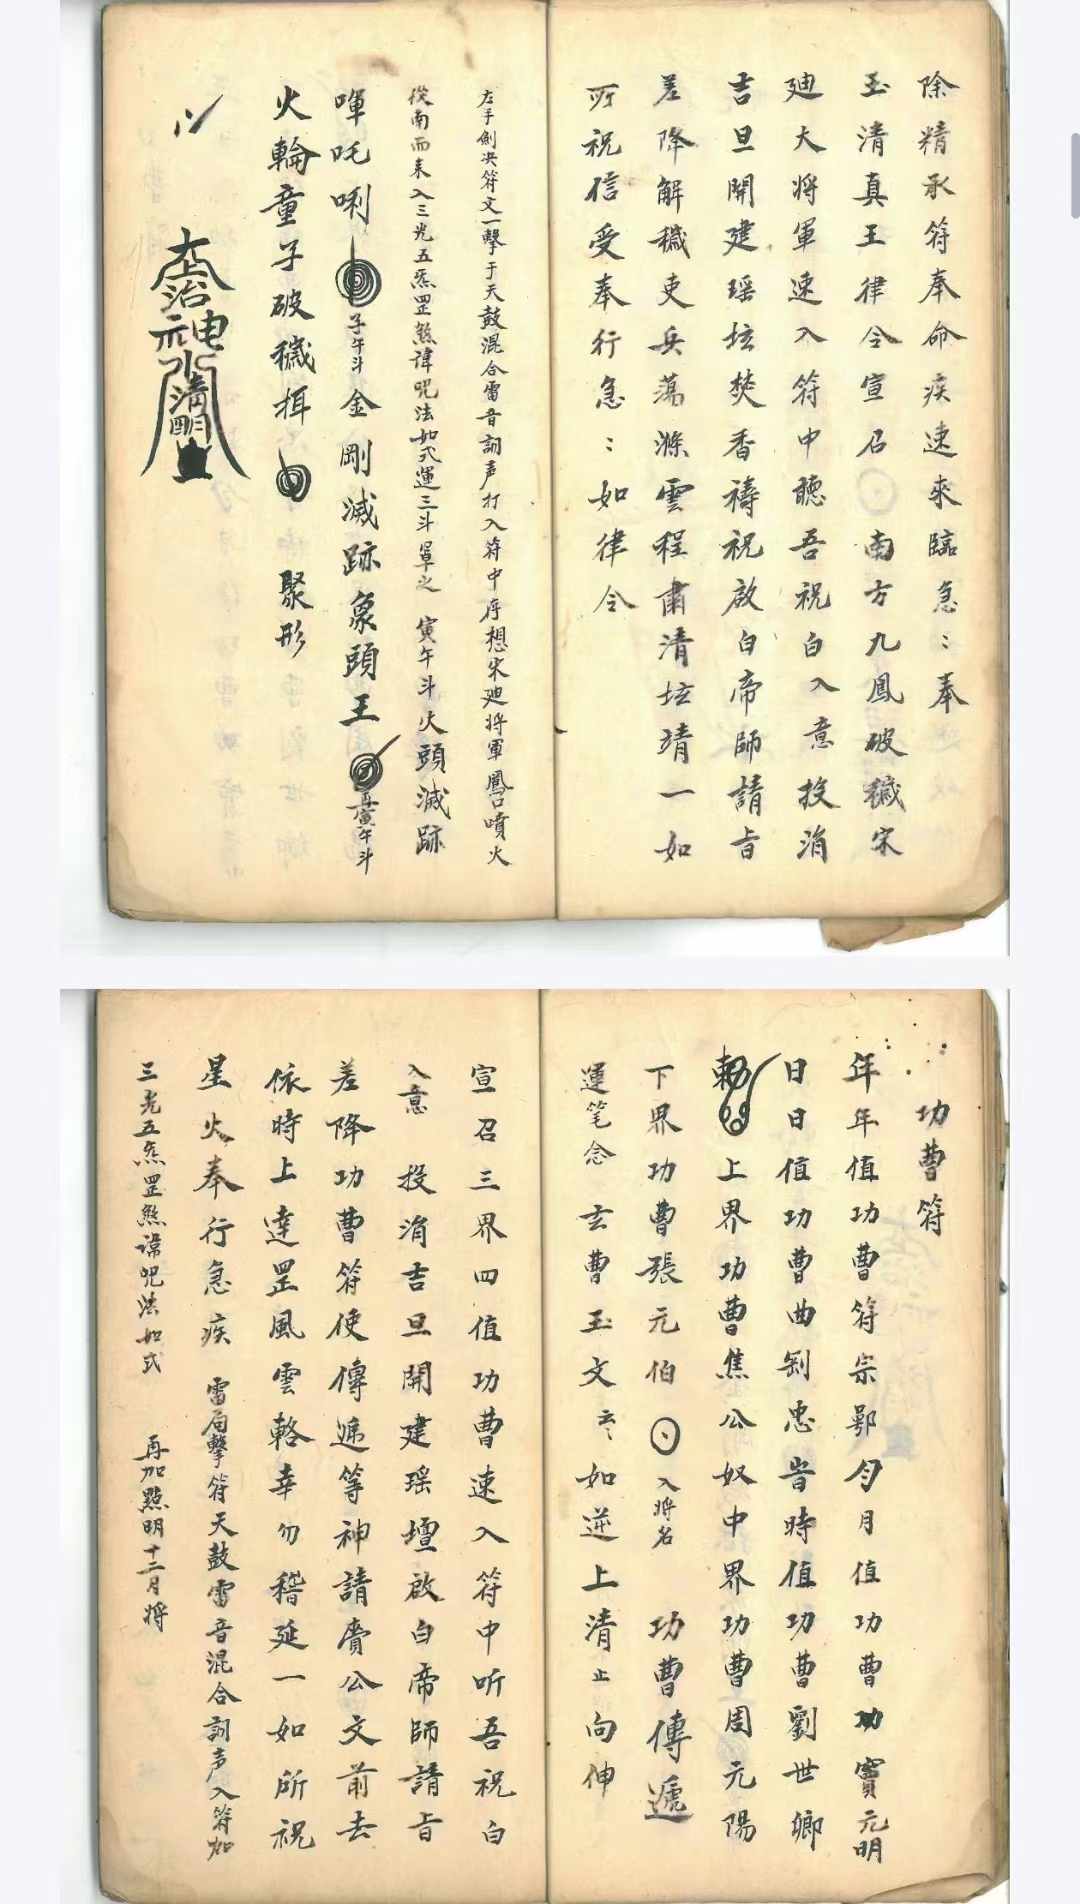 除精承符奉命疾速來臨急：奉
玉清真王律令宣召 南方九鳳破穢宋
廸大將軍速入符中聽吾祝白入意投涓
吉旦開建瑶坛焚香禱祝啟白帝師請旨
差降解穢吏兵蕩滌雲程肅清坛靖一如
所祝信受奉行急：如律令
左手劍决符文一擊于天鼓混合雷音訶声打入符中存想宋廸將軍鳳口噴火
從南而来入三光五炁罡煞諱咒法如式運三斗罩之 寅午斗火頭滅跡
啤吒唎 子午斗金剛滅跡象頭王 再寅午斗
火輪童子破穢挕 聚形
治神水清明
功曹符
年年值功曹符宗鄂 月月值功曹功竇元明
日日值功曹曲釗忠 旹時值功曹劉世卿
勅 上界功曹焦公奴中界功曹周元陽
下界功曹張元伯 入將名 功曹傳遞
運笔念 玄曹玉文云 如逆上清止向伸
宣召三界四值功曹速入符中听吾祝白
入意 投涓吉旦開建瑶壇啟白帝師請旨
差降功曹符使傳遞等神請賫公文前去
依時上達罡風雲輅幸勿稽延一如所祝
星火奉行急疾 雷局擊符天鼓雷音混合訶声入符加
三光五炁罡煞諱咒法如式 再加點明十二月將